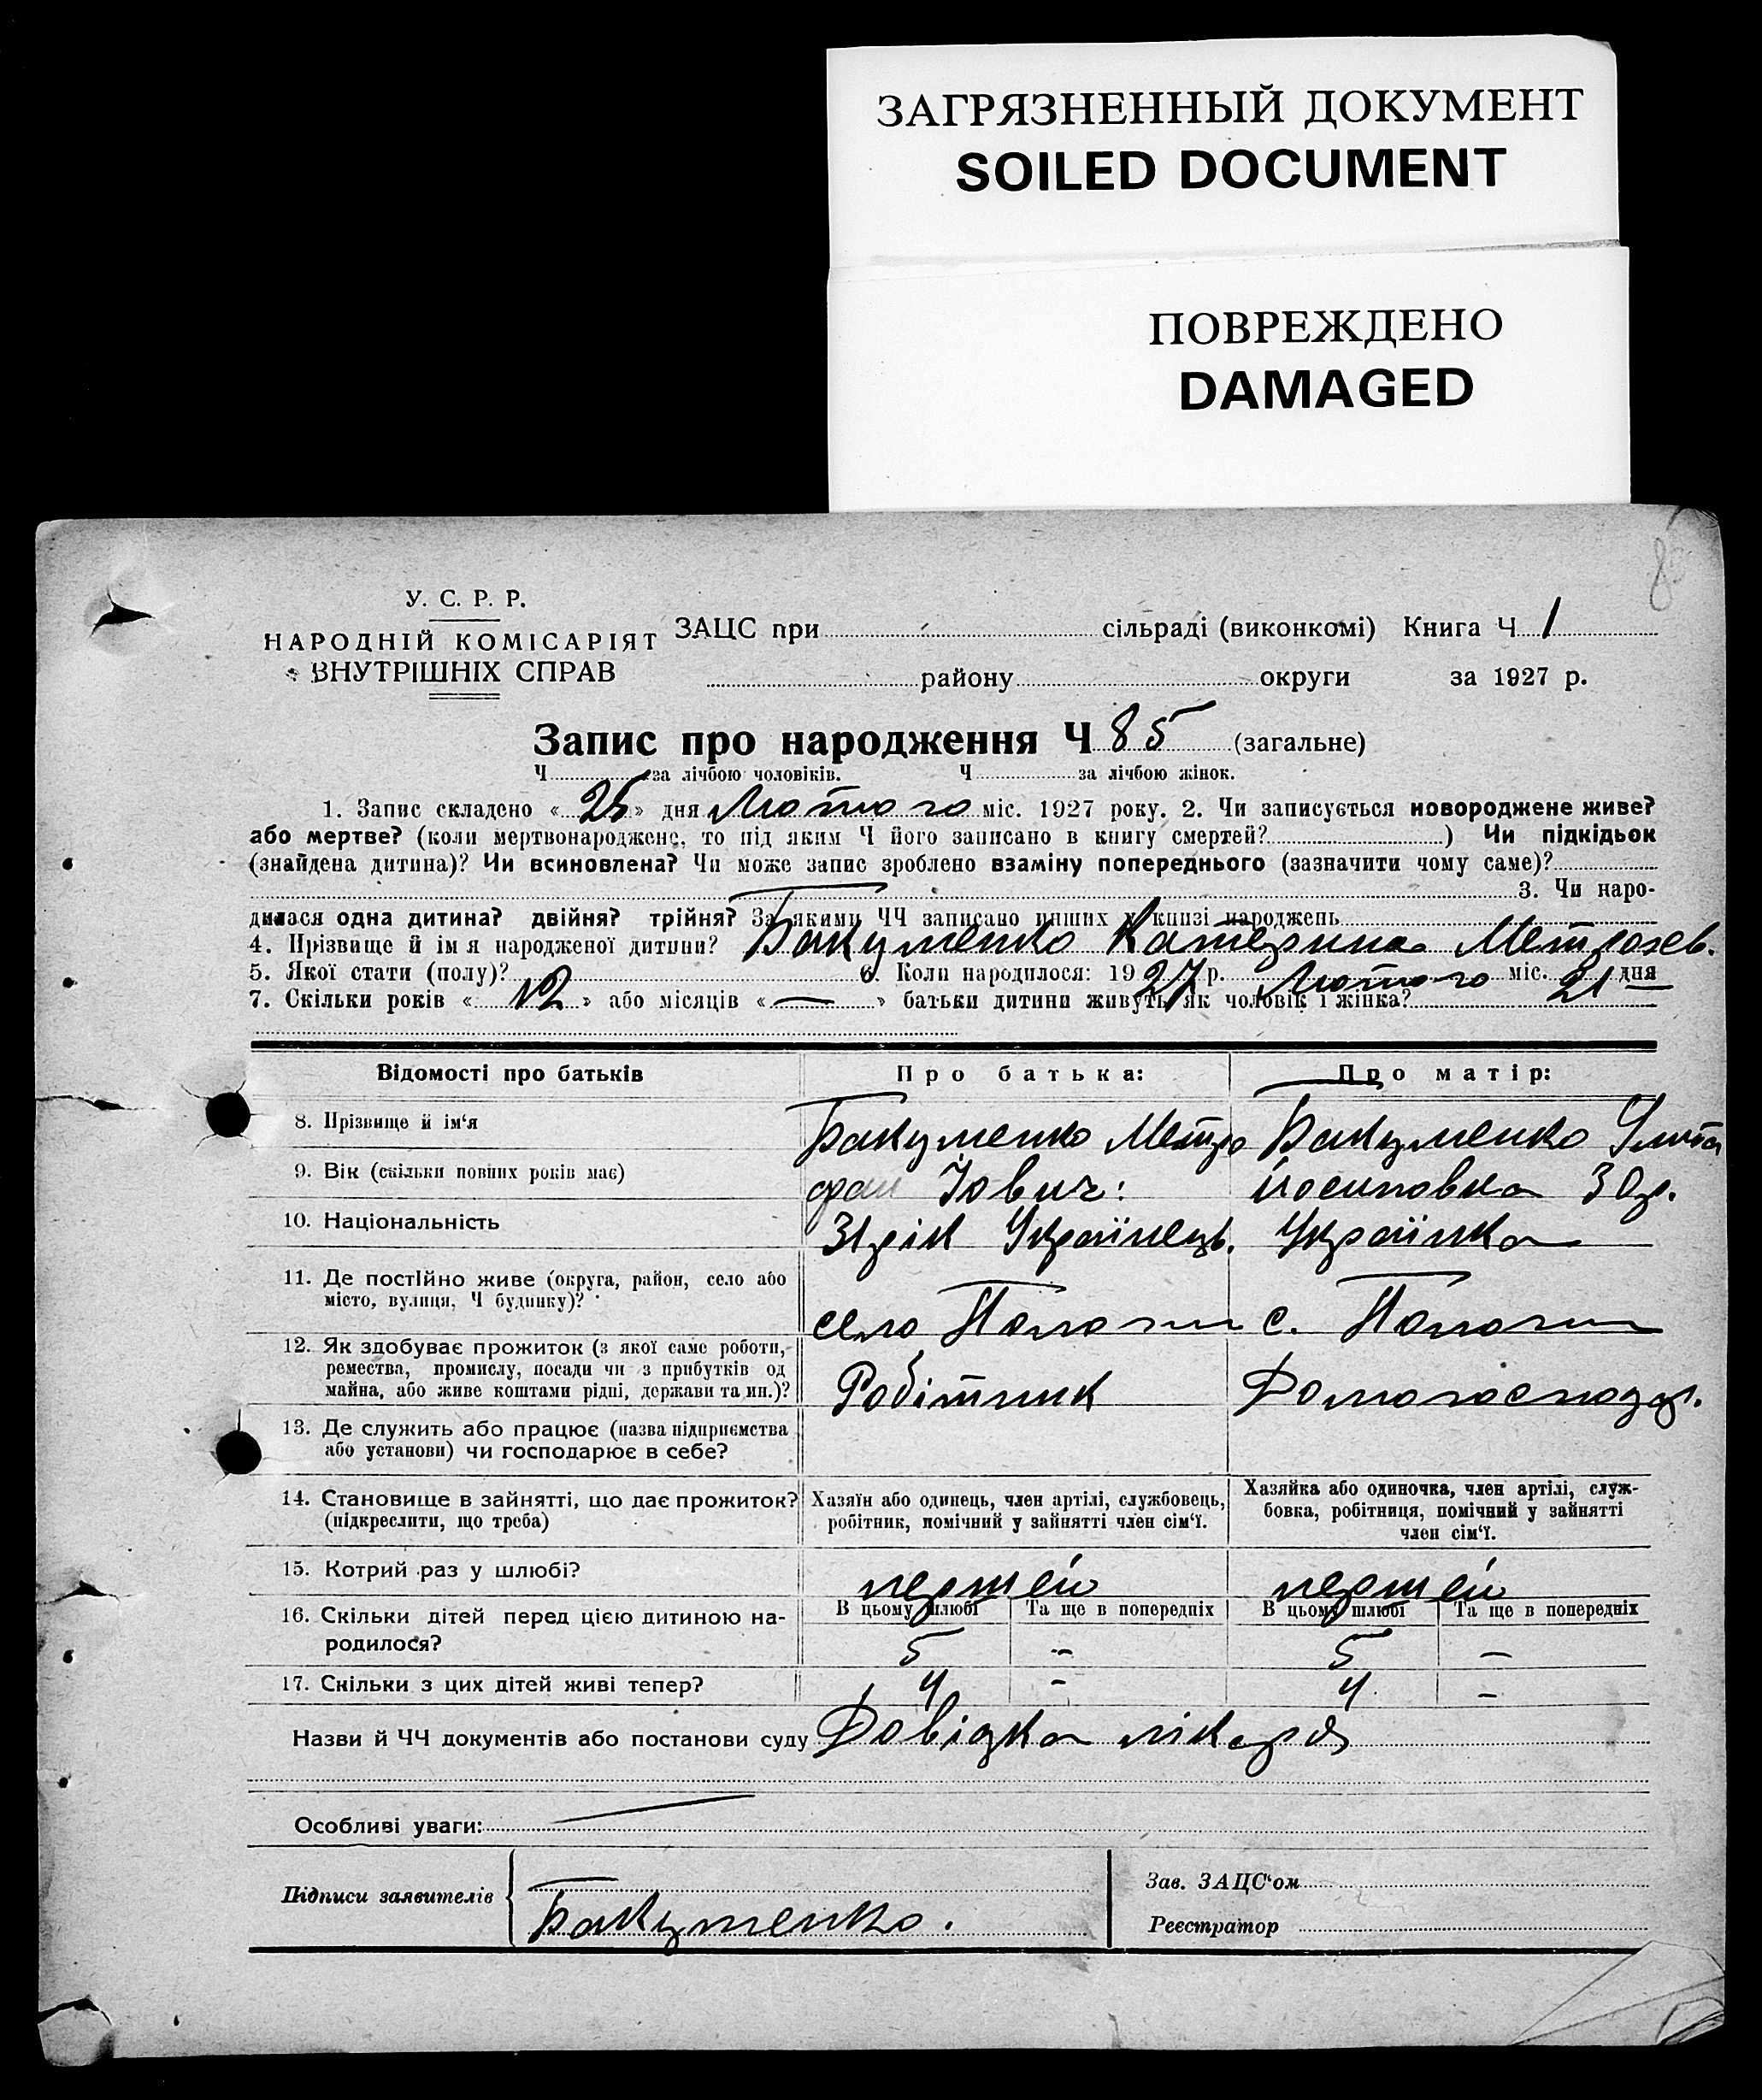 ЗАГРЯЗНЕННЫЙ ДОКУМЕНТ
SOILED DOCUMENT
ПОВРЕЖДЕНО
DAMAGED
У. С. Р. Р.
НАРОДНІЙ КОМІСАРІЯТ
ВНУТРІШНІХ СПРАВ
ЗАЦС при сільраді (виконкомі) Книга Ч 1
району округи за 1927 р.
Запис про народження Ч 85 (загальне)
Ч за лічбою чоловіків. Ч за лічбою жінок.
1. Запис складено « 25 » дня Лютого міс. 1927 року. 2. Чи записується новороджене живе?
або мертве? (коли мертвонароджене, то під яким Ч його записано в книгу смертей? ) Чи підкідьок
(знайдена дитина)? Чи всиновлена? Чи може запис зроблено взаміну попереднього (зазначити чому саме)?
3. Чи наро-
дилася одна дитина? двійня? трійня? За якими ЧЧ записано инших у книзі народжень
4. Прізвище й ім я народженої дитини? Бакуменко Катерина
5. Якої стати (полу)? 6. Коли народилося: 19 27 р. Лютого міс. 21 дня
7. Скільки років « 12 » або місяців « — » батьки дитини живуть як чоловік і жінка?
Відомості про батьків
Про батька:
Про матір:
8. Прізвище й ім'я
Бакуменко Митро
Бакуменко
9. Вік (скільки повних років має)
фан Іович:
йосиповна 30р.
10. Національність
31 рік Українець.
Українка
11. Де постійно живе (округа, район, село або
місто, вулиця, Ч будинку)?
село Пологи
с. Пологи
12. Як здобуває прожиток (з якої саме роботи,
ремества, промислу, посади чи з прибутків од
майна, або живе коштами рідні, держави та ин.)?
Робітник
Домогосподар.
13. Де служить або працює (назва підприємства
або установи) чи господарює в себе?
14. Становище в зайнятті, що дає прожиток?
(підкреслити, що треба)
Хазяїн або одинець, член артілі, службовець,
робітник, помічний у зайнятті член сім'ї.
Хазяйка або одиночка, член артілі, служ-
бовка, робітниця, помічний у зайнятті
член сім'ї.
15. Котрий раз у шлюбі?
першей
першей
16. Скільки дітей перед цією дитиною на-
родилося?
В цьому шлюбі Та ще в попередніх
В цьому шлюбі Та ще в попередніх
5 –
5 –
17. Скільки з цих дітей живі тепер?
4 –
4 –
Назви й ЧЧ документів або постанови суду Довідка лікаря
Особливі уваги:
Підписи заявителів
Бакуменко.
Зав. ЗАЦС'ом
Реєстратор